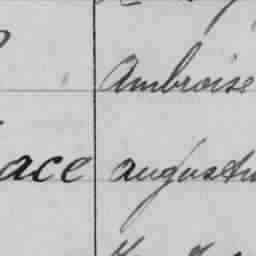 Ambroise
ace augustu